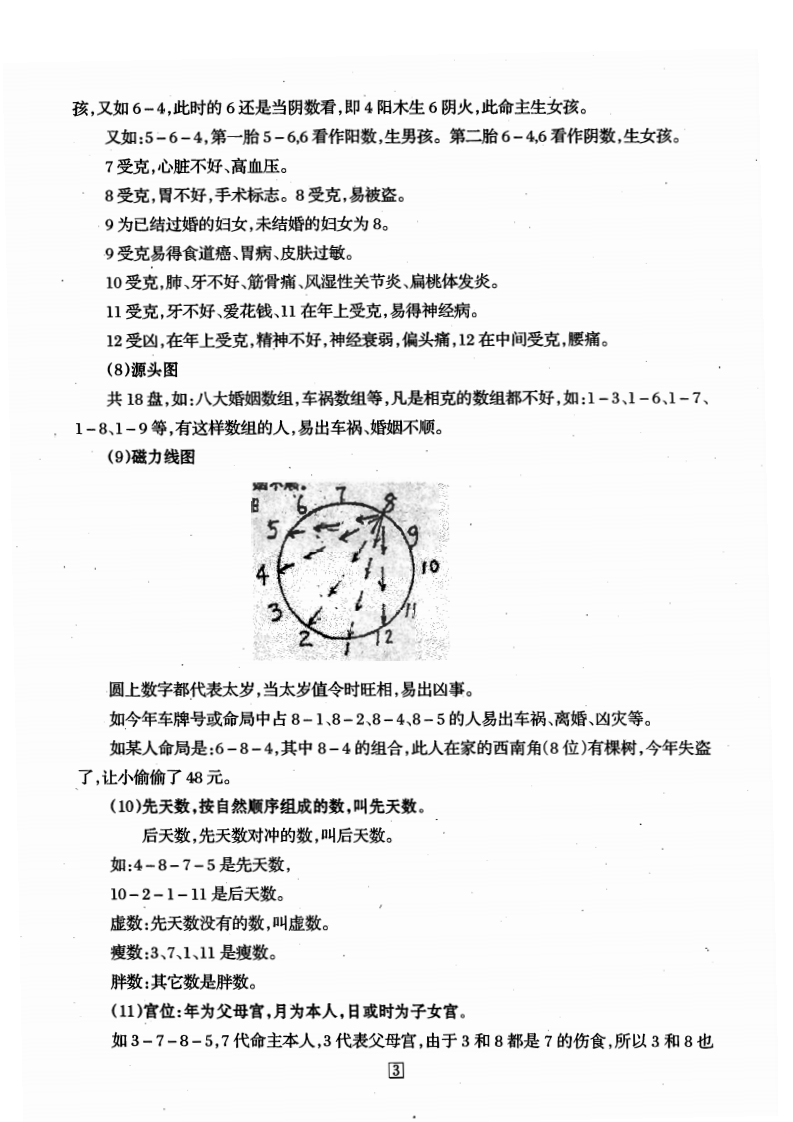 孩,又如6-4,此时的6还是当阴数看,即4阳木生6阴火,此命主生女孩。
又如:5-6-4,第一胎5-6,6看作阳数,生男孩。第二胎6-4,6看作阴数,生女孩。
7受克,心脏不好、高血压。
8受克,胃不好,手术标志。8受克,易被盗。
9为已结过婚的妇女,未结婚的妇女为8。
9受克易得食道癌、胃病、皮肤过敏。
10受克,肺、牙不好、筋骨痛、风湿性关节炎、扁桃体发炎。
11受克,牙不好、爱花钱、11在年上受克,易得神经病。
12受凶,在年上受克,精神不好,神经衰弱,偏头痛,12在中间受克,腰痛。
(8)源头图
共18盘,如:八大婚姻数组,车祸数组等,凡是相克的数组都不好,如:1-3、1-6、1-7、
1-8、1-9等,有这样数组的人,易出车祸、婚姻不顺。
(9)磁力线图
7
6
8
5
9
4
10
3
11
2
1
12
圆上数字都代表太岁,当太岁值令时旺相,易出凶事。
如今年车牌号或命局中占8-1、8-2、8-4、8-5的人易出车祸、离婚、凶灾等。
如某人命局是:6-8-4,其中8-4的组合,此人在家的西南角(8位)有棵树,今年失盗
了,让小偷偷了48元。
(10)先天数,按自然顺序组成的数,叫先天数。
后天数,先天数对冲的数,叫后天数。
如:4-8-7-5是先天数,
10-2-1-11是后天数。
虚数:先天数没有的数,叫虚数。
瘦数:3、7、1、11是瘦数。
胖数:其它数是胖数。
(11)宫位:年为父母宫,月为本人,日或时为子女宫。
如3-7-8-5,7代命主本人,3代表父母宫,由于3和8都是7的伤食,所以3和8也
3